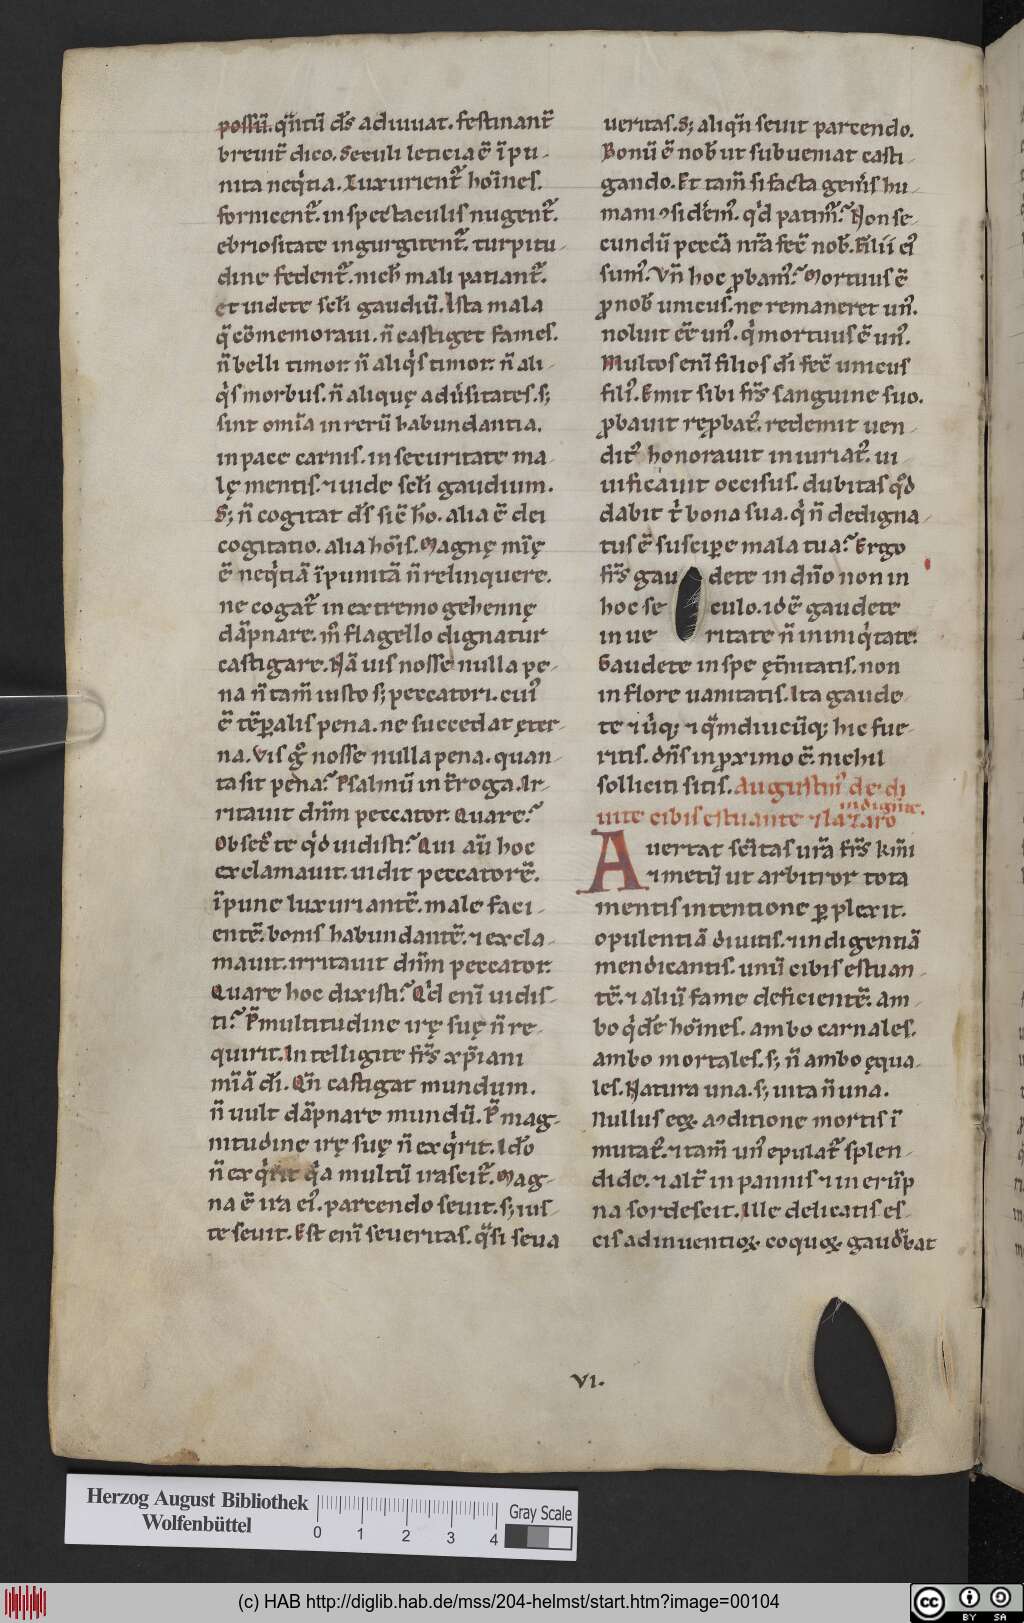 possu͞. qn̄tu͞ d͞s adiuuat. festinant᷑
breuit᷑ dico. Seculi leticia e͞ i͞pu-
nita neqͥtia. Luxurient᷑ hoi͞nes.
fornicent᷑. in spectaculis nugent᷑.
ebriositate ingurgitent᷑. turpitu-
dine fedent᷑. nich̅ mali patiant᷑.
et uidete sc̅li gaudiu͞. Ista mala
q̄ co͞memoraui. n̄ castiget fames.
n̄ belli timor. n̄ aliqͥs timor. n̄ ali-
qͥs morbus. n̄ alique̜ adu͛sitates. s;
sint omi͞a in reru͞ habundantia.
in pace carnis. in securitate ma-
le̜ mentis. ⁊ uide sc̅li gaudium.
S; n̄ cogitat d͞s sic̅ ho͞. alia e͞ dei
cogitatio. alia hoi͞s. Magne̜ mi͞e̜
e͞ neqͥtia͞ i͞punita͞ n̄ relinquere.
ne cogat᷑ in extremo gehenne̜
da͞pnare. mͦ flagello dignatur
castigare. Na͞ uis nosse nulla pe-
na n̄ tam̅ iusto s; peccatori. cuiꝰ
e͞ te͞p̲alis pena. ne succedat e̜ter-
na. Vis gͦ nosse nulla pena. quan-
ta sit pena? Psalmu͞ int᷑roga. Ir-
ritauit dn̅m peccator. Quare?
Obsec͛ te qͥd uidisti? Qui au͞ hoc
exclamauit. uidit peccatore͞.
i͞pune luxuriante͞. male faci-
ente͞. bonis habundante͞. ⁊ excla-
mauit. irritauit dn̅m peccator.
Quare hoc dixisti? Qd̅ eni͞ uidis-
ti? P͛ multitudine ire̜ sue̜ n̄ re-
quirit. Intelligite fr̅s xp̅iani
mi͞a͞ di͞. Qn̄ castigat mundum.
n̄ uult da͞pnare mundu͞. P͛ mag-
nitudine ire̜ sue̜ n̄ exqͥrit. Ido͞
n̄ exqͥrit qͥa multu͞ irascit᷑. Mag-
na e͞ ira eiꝰ. parcendo seuit. s; ius-
te seuit. Est eni͞ seueritas. qᷓsi seua
ueritas. S; aliqn̄ seuit parcendo.
Bonu͞ e͞ nob̅ ut subueniat casti-
gando. Et tam̅ si facta gen͛is hu-
mani ꝯsidem͛ꝰ. qd̅ patim͛ꝰ? Non se-
cundu͞ pecca͞ nr̅a fec̅ nob̅. Filii eiꝰ
sumꝰ. Vn̄ hoc ꝓbamꝰ? Mortuus e͞
ꝓ nob̅ unicus. ne remaneret unꝰ.
noluit ee͞ unꝰ. qͥ mortuus e͞ unꝰ.
Multos eni͞ filios di͞ fec̅ unicus
filiꝰ. Emit sibi fr̅s sanguine suo.
ꝓbauit re̜ꝓbatꝰ. redemit uen-
ditꝰ honorauit iniuriatꝰ. ui-
uificauit occisus. dubitas qͦd
dabit tͥ bona sua. qͥ n̄ dedigna-
tus e͞ suscip̲e mala tua? Ergo
fr̅s gaudete in dn̅o non in
hoc seculo. id e͞ gaudete
in ueritate n̄ in iniqͥtate.
Gaudete in spe e̜t͛nitatis. non
in flore uanitatis. Ita gaude-
te ⁊ u͛iq; ⁊ qᷓmdiucu͞q; hic fue-
ritis. dn̅s in ꝓximo e͞. nichil
solliciti sitis. Augustinꝰ de di-
uite cibis estuante ⁊ lazaro indigente.
Auertat sci͞tas ur̅a fr̅s kmi͞
⁊ i metu͞ ut arbitror tota
mentis intentione p̲plexit.
opulentia͞ diuitis. ⁊ indigentia͞
mendicantis. unu͞ cibis estuan-
te͞. ⁊ aliu͞ fame deficiente͞. Am-
bo qͥde͞ hoi͞nes. ambo carnales.
ambo mortales. s; n̄ ambo e̜qua-
les. Natura una. s; uita n̄ una.
Nullus eoꝝ ꝯditione mortis i͞-
mutatꝰ. ⁊ tam̅ unꝰ epulat᷑ splen-
dide. ⁊ alt᷑ in pannis ⁊ in eru͞p-
na sordescit. Ille delicatis es-
cis adinuentioꝝ coquoꝝ gaud͛bat
VI.
Herzog August Bibliothek
Wolfenbüttel
0 1 2 3 4
Gray Scale
(c) HAB http://diglib.hab.de/mss/204-helmst/start.htm?image=00104
cc BY SA